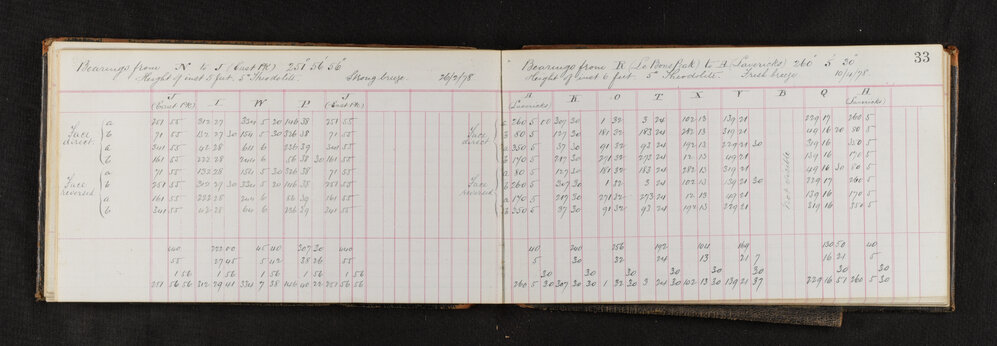 Bearings from N to J (East Pk) 251° 56' 56"
Height of inst 5 feet. 5" Theodolite. Strong breeze. 26/2/78.
J I W P J
(East Pk) (East Pk)
Face direct.
a 251 55 312 27 334 5 20 146 38 251 55
b 71 55 132 27 30 154 5 30 326 38 71 55
a 341 55 42 28 64 6 236 39 341 55
b 161 55 222 28 244 6 56 38 30 161 55
Face reversed
a 71 55 132 28 154 5 30 326 38 71 55
b 251 55 312 27 30 334 5 20 146 38 251 55
a 161 55 222 28 244 6 56 39 161 55
b 341 55 42 28 64 6 236 39 341 55
440 223 00 45 40 307 30 440
55 27 45 5 42 38 26 55
1 56 1 56 1 56 1 56 1 56
251 56 56 312 29 41 334 7 38 146 40 22 251 56 56
33
Bearings from R to A (Lavericks) 260° 5' 30"
Height of inst 6 feet. 5" Theodolite. Fresh breeze 10/4/78.
A K O T X V B Q
(Lavericks) (Lavericks)
Face direct.
a 260 5 00 307 30 1 32 3 24 102 13 139 21 229 17 260 5
b 80 5 127 30 181 32 183 24 282 13 319 21 49 16 20 80 5
a 350 5 37 30 91 32 93 24 192 13 229 21 30 319 16 350 5
b 170 5 217 30 271 32 273 24 12 13 49 21 139 16 170 5
not visible
Face reversed
a 80 5 127 30 181 32 183 24 282 13 319 21 49 16 30 80 5
b 260 5 307 30 1 32 3 24 102 13 139 21 30 229 17 260 5
a 170 5 217 30 271 32 273 24 12 13 49 21 139 16 170 5
b 350 5 37 30 91 32 93 24 192 13 229 21 319 16 350 5
40 240 256 192 104 169 130 50 40
5 30 32 24 13 21 7 16 21 5
30 30 30 30 30 30 30 30
260 5 30 307 30 30 1 32 30 3 24 30 102 13 30 139 21 37 229 16 51 260 5 30